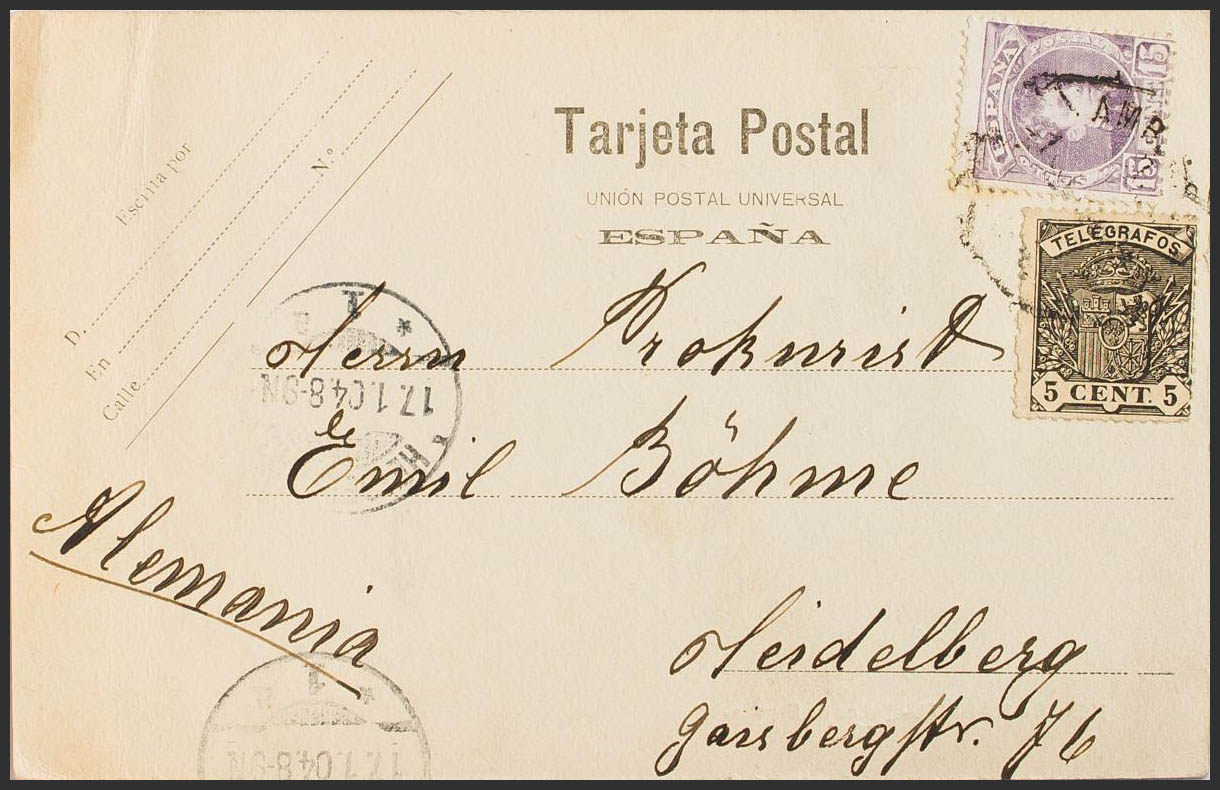 Tarjeta Postal
UNIÓN POSTAL UNIVERSAL
ESPAÑA
Escrita por
D.
En
Calle
N.º
ESPAÑA
POSTAL
15
15
T. AMB
TELÉGRAFOS
5 CENT. 5
Herrn Prokurist
Emil Böhme
Alemania
Heidelberg
Gaisbergstr. 76
1
17.1.04.8-9N
1
17.1.04.8-9N